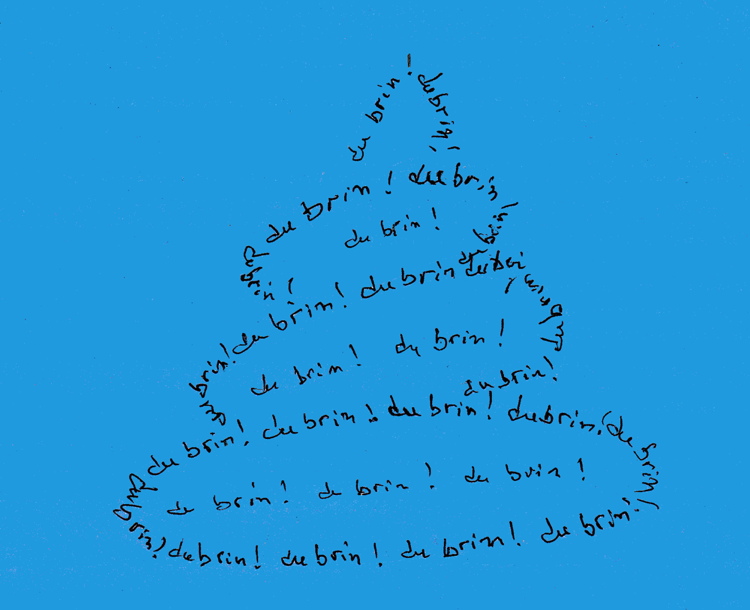 du brin! du brin!
du brin! du brin!
du brin!
du brin!
du brin! du brin! du brin
du brin!
du brin! du brin!
du brin!
du brin! du brin! du brin! du brin! du brin!
du brin! du brin! du brin!
du brin! du brin! du brin! du brin! du brin!